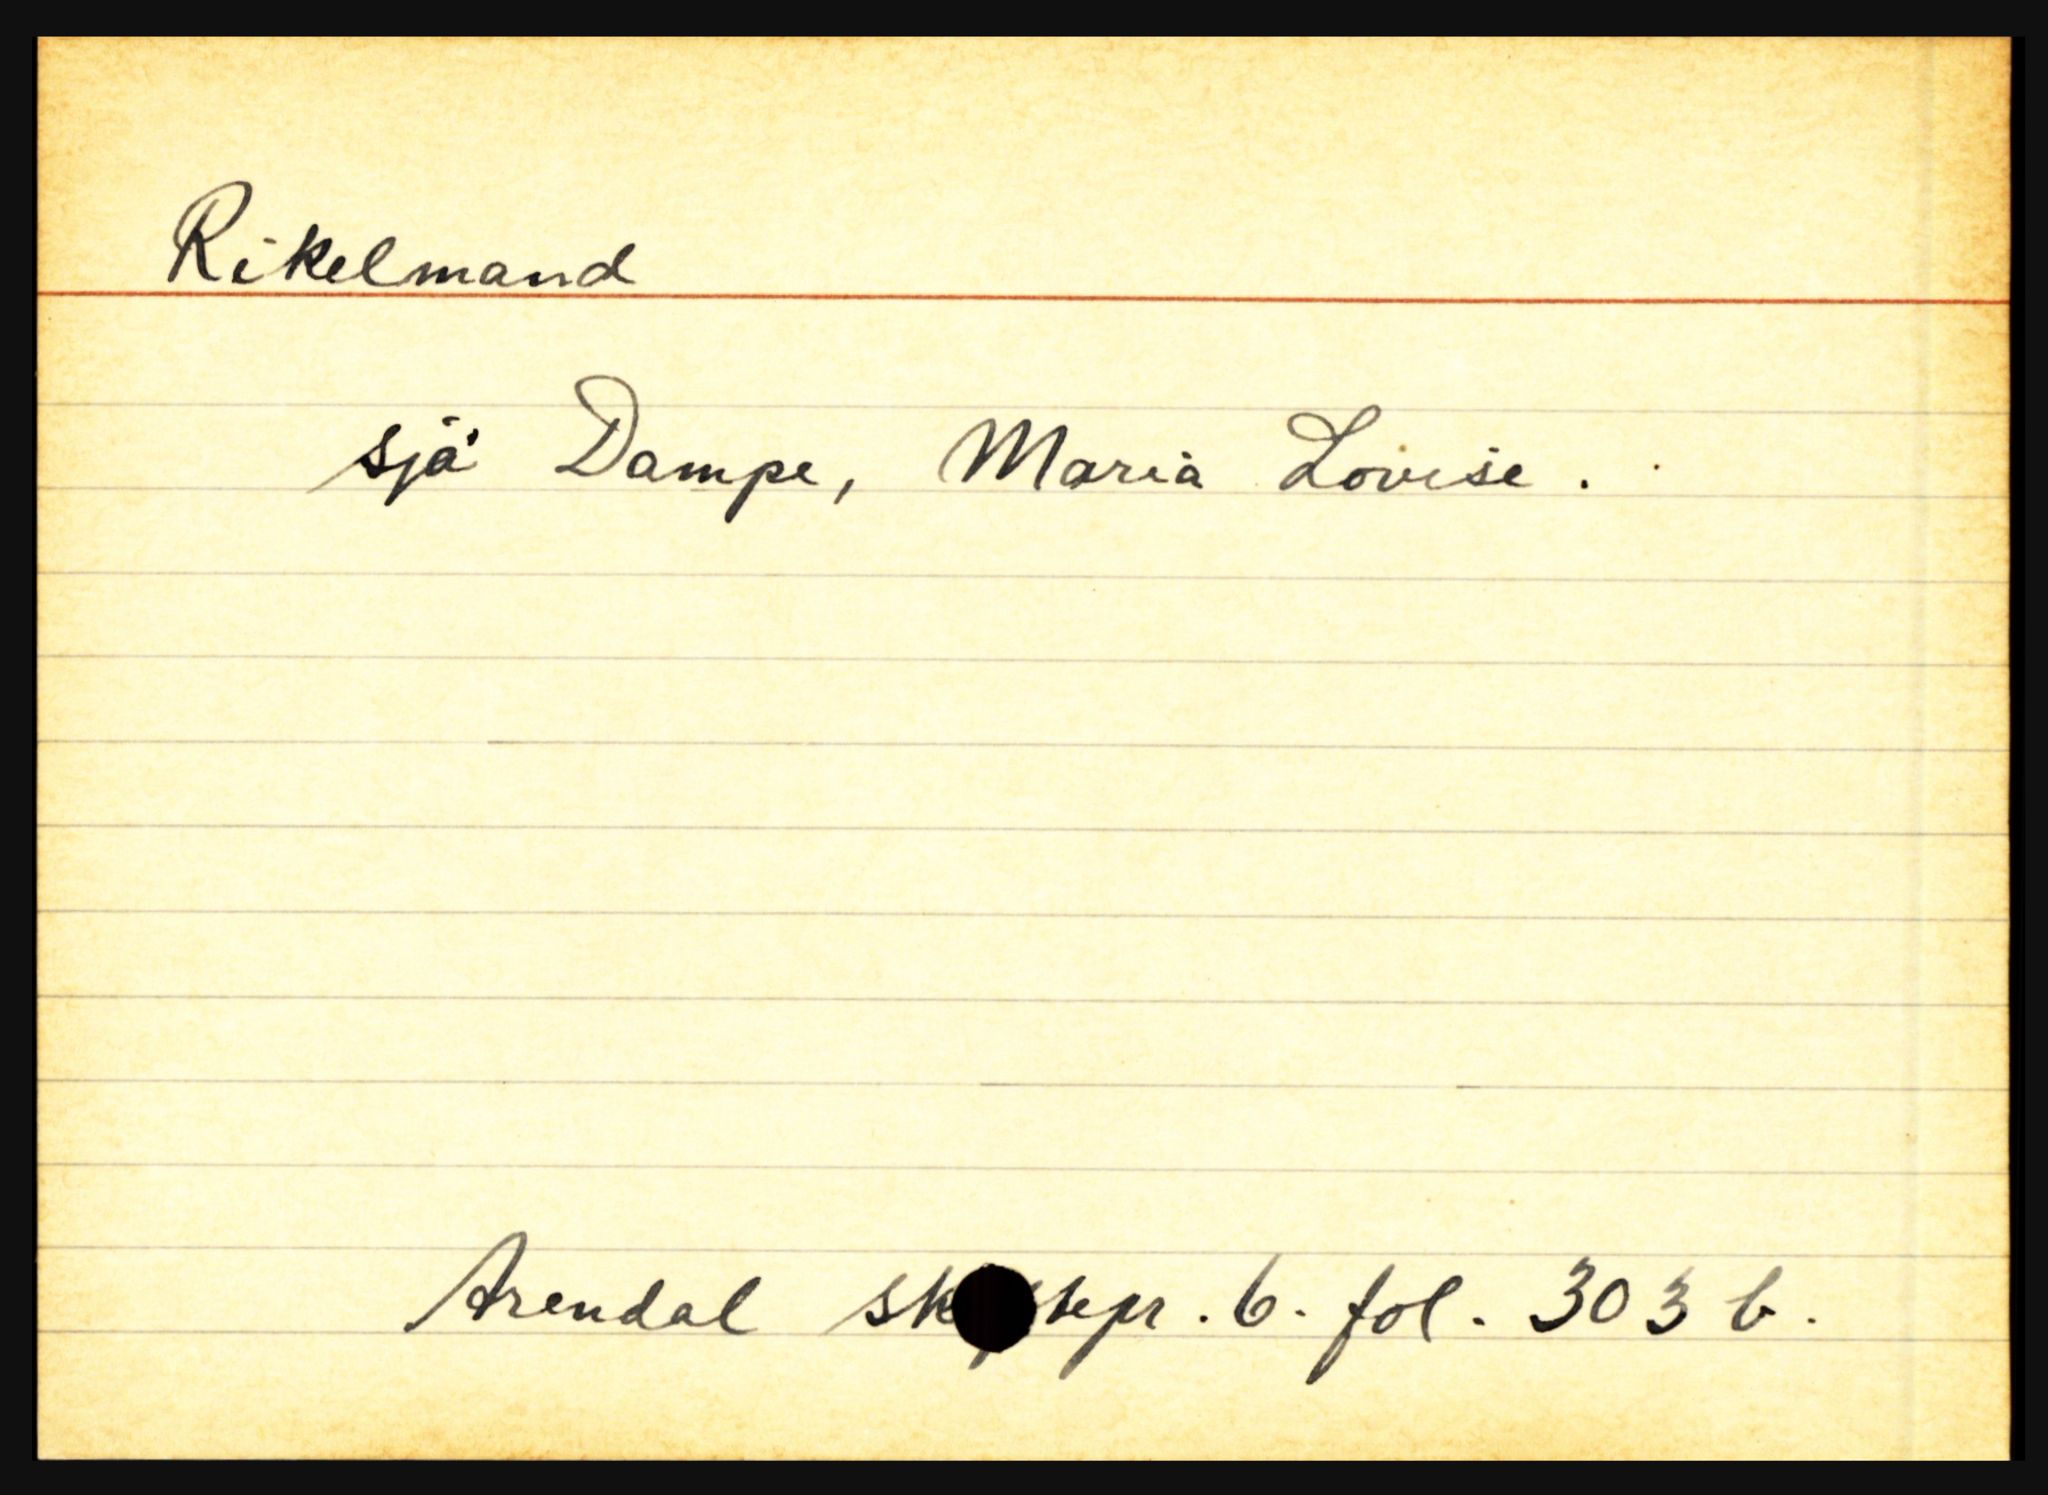 Rikelmand
sjå Dampe, Maria Lovise.
Arendal . 6. fol. 303 b.